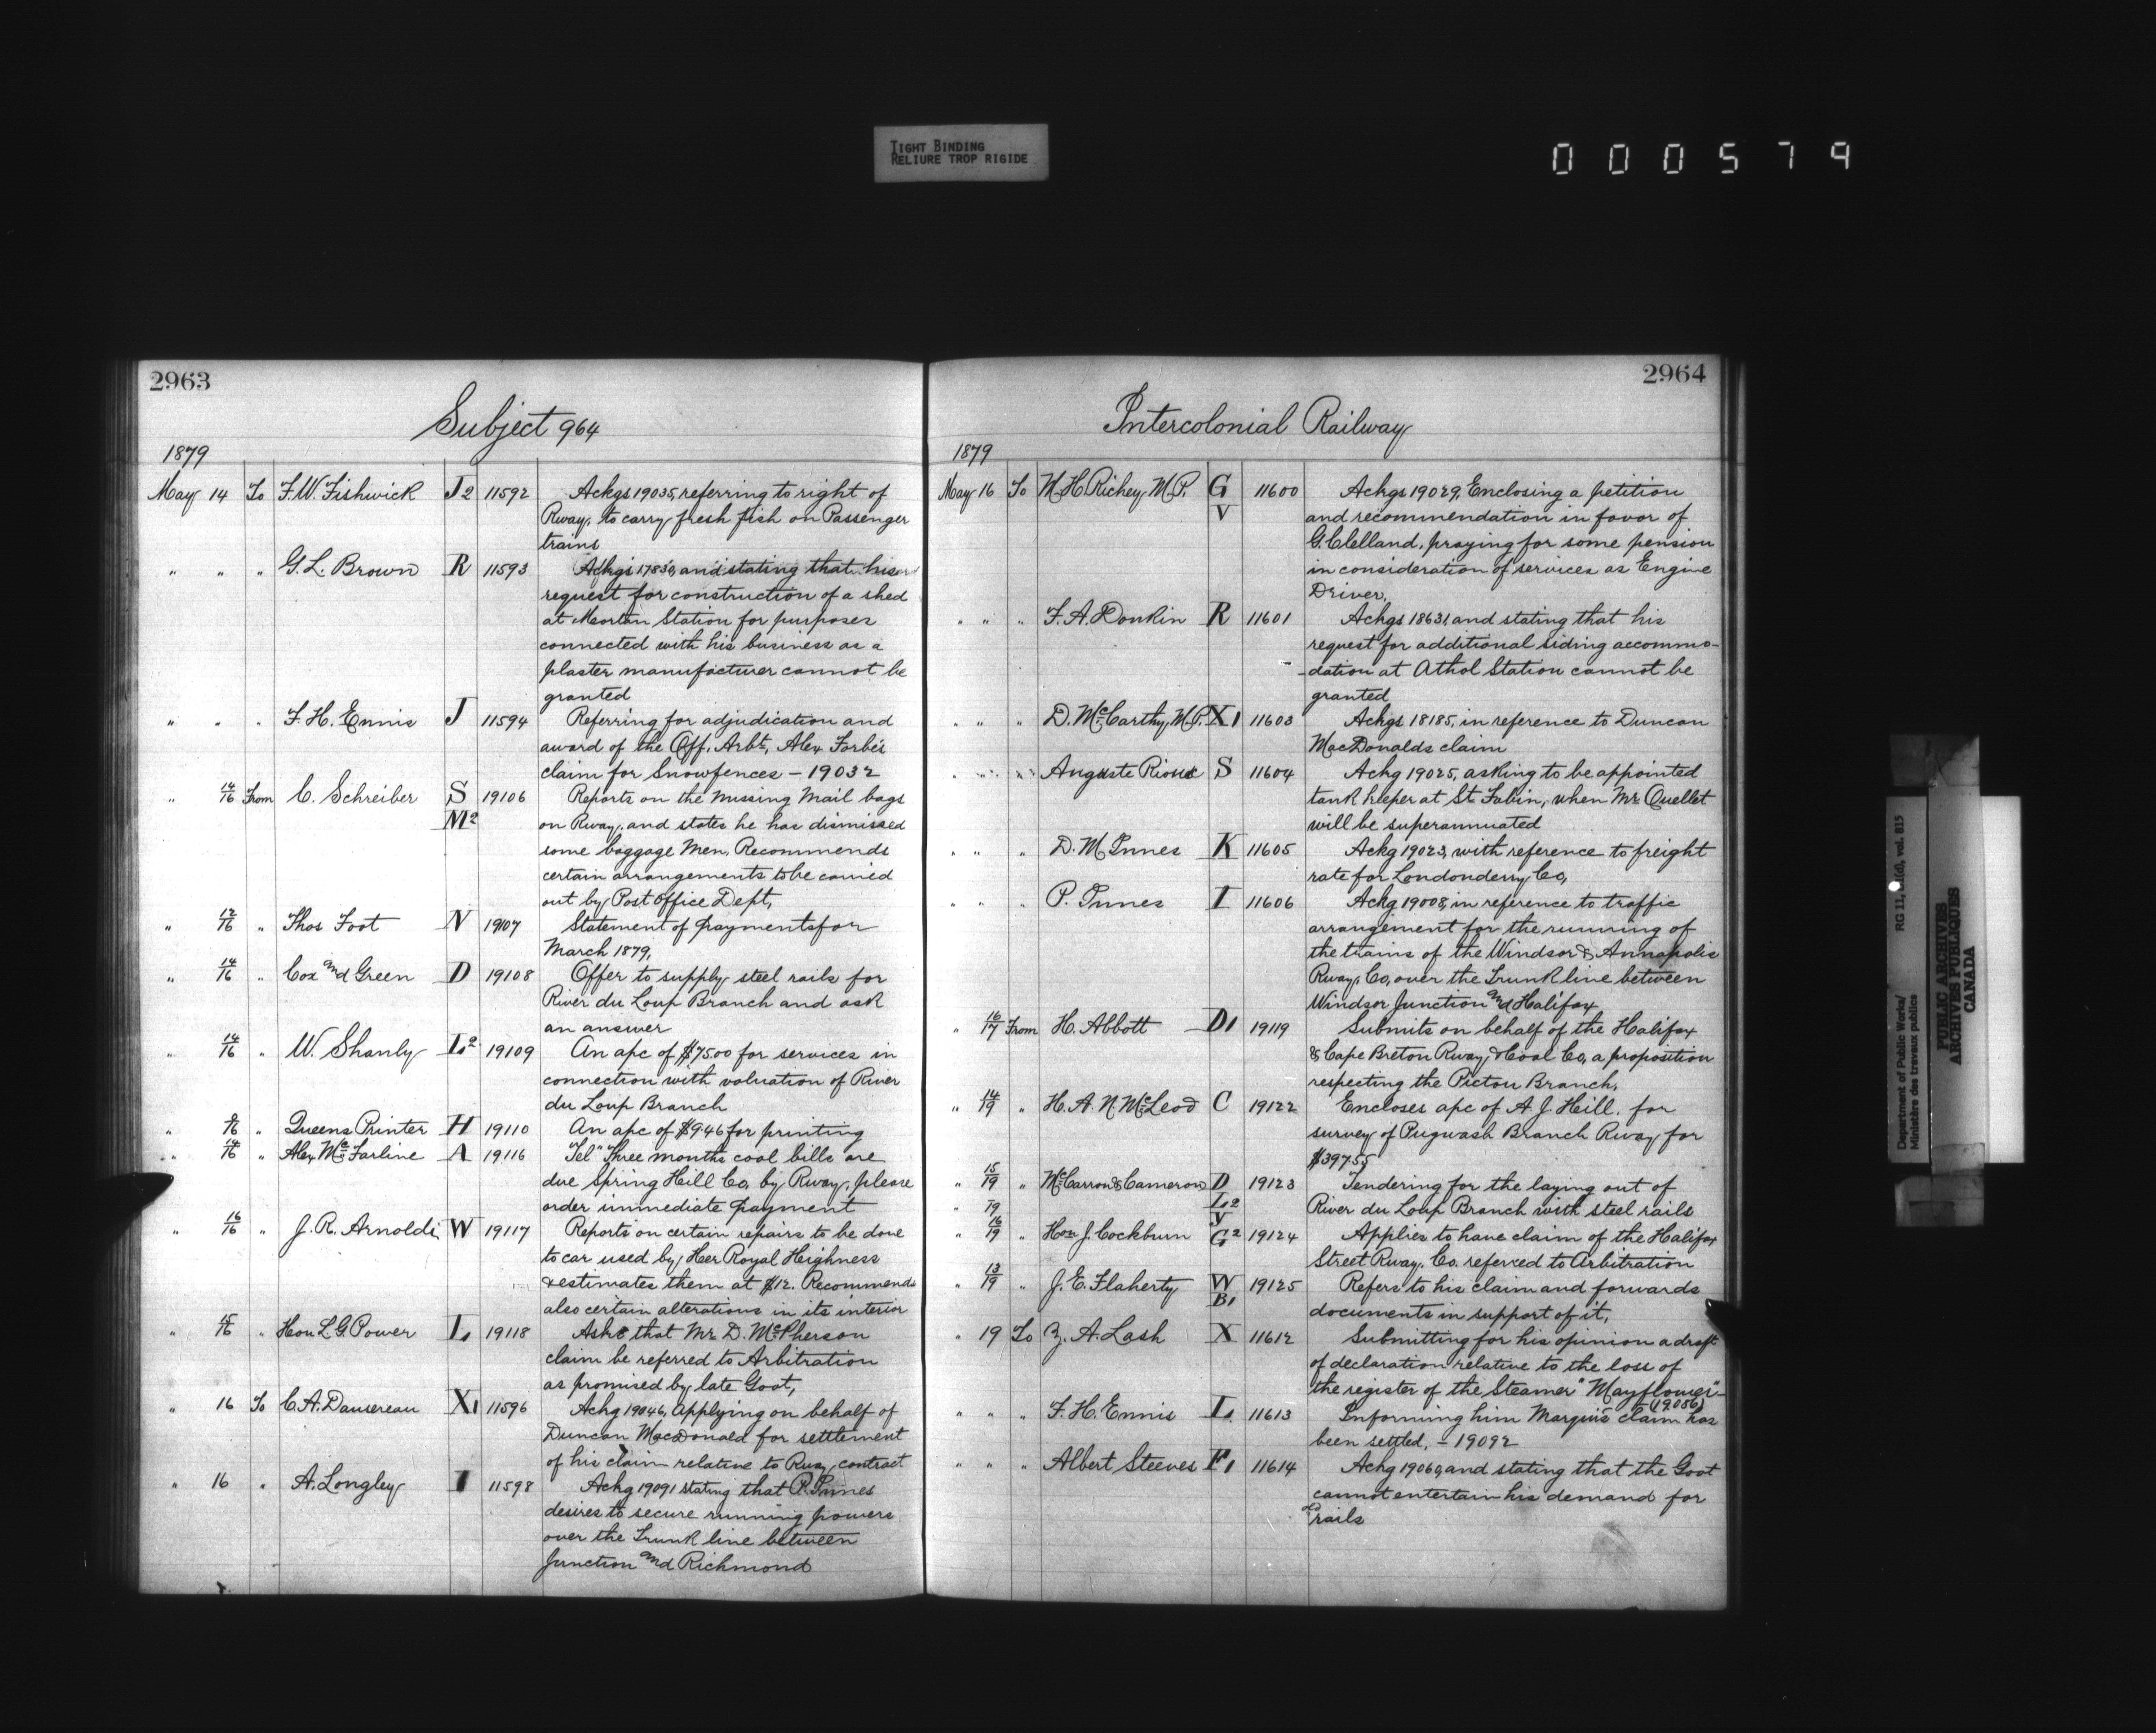 TIGHT BINDING
RELIURE TROP RIGIDE
000579
2963
Subject 964
1879
May 14 To F. W. Fishwick J2 11592 Ackgs 19035, referring to right of
Rway. to carry fresh fish on Passenger
trains
" " " G. L. Brown R 11593 Ackgs 17830, and stating that his
request for construction of a shed
at Station for purposes
connected with his business as a
plaster manufacturer cannot be
granted
" " " F. H. Ennis J 11594 Referring for adjudication and
award of the Off. Arbts, Alex Forbes
claim for Snowfences - 19032
" 14/16 From C. Schreiber S 19106 Reports on the missing mail bags
M2 on Rway. and states he has dismissed
some baggage men. Recommends
certain arrangements to be carried
out by Post Office Dept,
" 12/16 " Thos Foot N 19107 Statement of payments for
March 1879,
" 14/16 " Cox and Green D 19108 Offer to supply steel rails for
River du Loup Branch and ask
an answer
" 14/16 " W. Shanly L2 19109 An apc of $7500 for services in
connection with valuation of River
du Loup Branch
" " Queens Printer H 19110 An apc of $946 for printing
" 14/16 " Alex McFarline A 19116 Tel" Three months coal bills are
due Spring Hill Co. by Rway, please
order immediate payment
" 16/16 " J. R. Arnoldi W 19117 Reports on certain repairs to be done
to car used by Her Royal Highness
& estimates them at $12. Recommends
also certain alterations in its interior
" 15/16 " Hon L. G. Power L, 19118 Asks that Mr. D. McPherson
claim be referred to Arbitration
as promised by late Govt,
" 16 To C. A. Dansereau X1 11596 Ackg 19046, applying on behalf of
Duncan MacDonald for settlement
of his claim relative to Rway contract
" 16 " A. Longley I 11598 Ackg 19091 stating that P. Innes
desires to secure running powers
over the Trunk line between
Junction and Richmond
2964
Intercolonial Railway
1879
May 16 To M. H. Richey, M.P. G 11600 Ackgs 19029, Enclosing a petition
V and recommendation in favor of
G. Clelland, praying for some pension
in consideration of services as Engine
Driver.
" " " F. A. Donkin R 11601 Ackgs 18631, and stating that his
request for additional siding accommo-
-dation at Athol Station cannot be
granted
" " " D. McCarthy, M.P. X1 11603 Ackgs 18185, in reference to Duncan
MacDonalds claim
" " " Auguste Rioux S 11604 Ackg 19025, asking to be appointed
tank keeper at St Fabin, when Mr. Ouellet
will be superannuated
" " " D. McInnes K 11605 Ackg 19023, with reference to freight
rate for Londonderry Co,
" " " P. Innes I 11606 Ackg 19008, in reference to traffic
arrangement for the running of
the trains of the Windsor & Annapolis
Rway, Co, over the Trunk line between
Windsor Junction and Halifax
" 16/17 From H. Abbott D1 19119 Submits on behalf of the Halifax
& Cape Breton Rway, & Coal Co, a proposition
respecting the Pictou Branch,
" 14/19 " H. A. N. McLeod C 19122 Encloses apc of A. J. Hill. for
survey of Pugwash Branch Rway for
$39755
" 15/19 " McCarron & Cameron D 19123 Tendering for the laying out of
" 19 L2 River du Loup Branch with steel rails
" 16/19 " Hon J. Cockburn Y G2 19124 Applies to have claim of the Halifax
Street Rway. Co. referred to Arbitration
" 13/19 " J. E. Flaherty W 19125 Refers to his claim and forwards
B1 documents in support of it,
" 19 To Z. A. Lash X 11612 Submitting for his opinion a draft
of declaration relative to the loss of
the register of the Steamer "Mayflower"
(19086)
" " " F. H. Ennis L 11613 Informing him Marquis claim has
been settled, - 19092
" " " Albert Steeves F1 11614 Ackg 19060, and stating that the Govt
cannot entertain his demand for
old rails
Department of Public Works/
Ministère des travaux publics
RG 11, vol. 815
PUBLIC ARCHIVES
ARCHIVES PUBLIQUES
CANADA